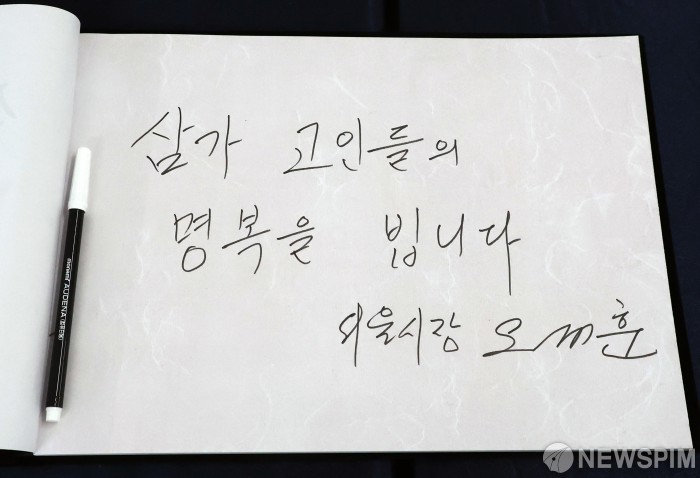 삼가 고인들의
명복을 빕니다
서울시장 오세훈
monami AUDENA
NEWSPIM